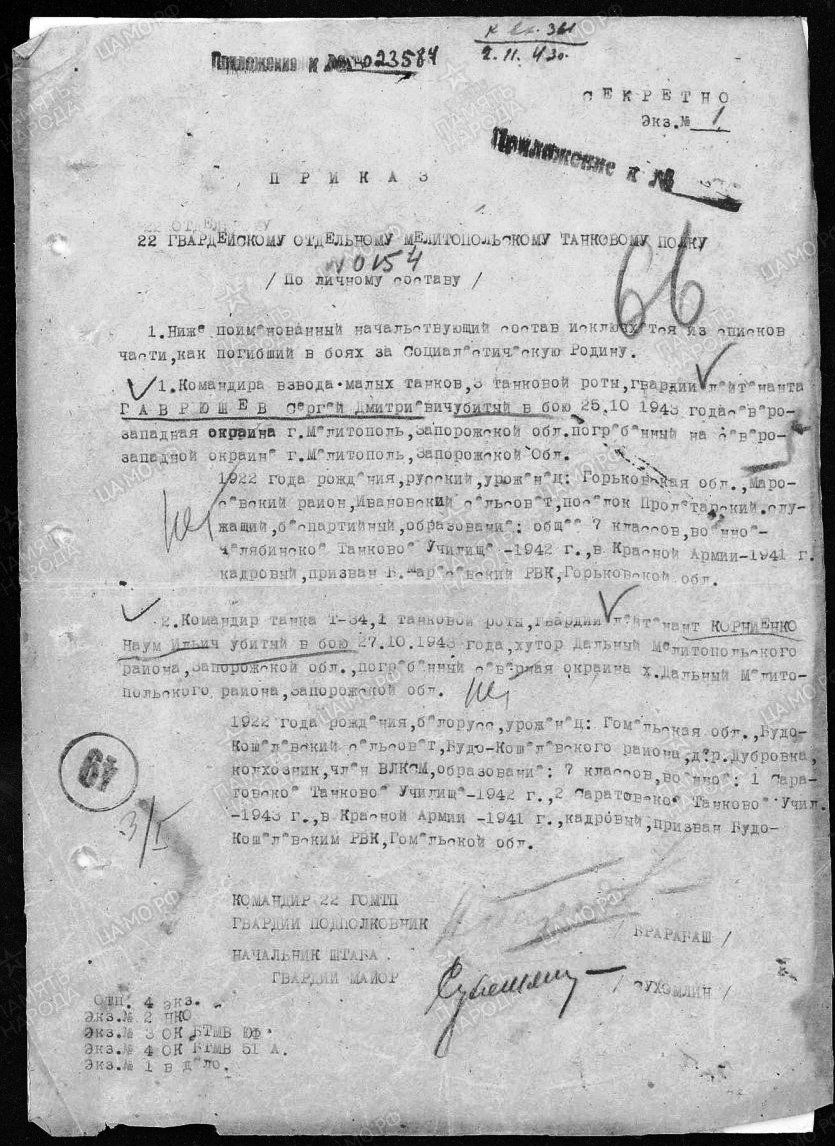 к вх. 361
Приложения к 023584
2.11.43г.
СЕКРЕТНО
Экз.№ 1
Приложение к №
ПРИКАЗ
22 ГВАРДЕЙСКОМУ ОТДЕЛЬНОМУ МЕЛИТОПОЛЬСКОМУ ТАНКОВОМУ ПОЛКУ
№ 0154
/ По личному составу /
66
1.Ниже поименованный начальствующий состав исключается из списков
части,как погибший в боях за Социалистическую Родину.
1.Командира взвода малых танков,3 танковой роты,гвардии лейтенанта
ГАВРЮШЕВ Сергей Дмитриевич убитый в бою 25.10 1943 года северо-
западная окраина г.Мелитополь,Запорожской обл.погребенный на северо-
западной окраине г.Мелитополь,Запорожской Обл.
1922 года рождения,русский,уроженец: Горьковская обл.,Маро-
севский район,Ивановский сельсовет,поселок Пролетарский.слу-
жащий,беспартийный,образование: общее 7 классов,военное-
Челябинское Танковое Училище -1942 г.,в Красной Армии-1941 г.
кадровый,призван Б.Маресевский РВК,Горьковской обл.
2.Командир танка Т-34,1 танковой роты,гвардии лейтенант КОРНИЕНКО
Наум Ильич убитый в бою 27.10.1943 года,хутор Дальный Мелитопольского
района,Запорожской обл.,погребенный северная окраина х.Дальный Мелито-
польского района,Запорожской обл.
1922 года рождения,белорусс,уроженец: Гомельская обл.,Будо-
Кошелевский сельсовет,Будо-Кошелевского района,дер.Дубровка,
колхозник,член ВЛКСМ,образование: 7 классов,военное: 1 Сара-
товское Танковое Училище-1942 г.,2 Саратовское Танковое Учил.
-1943 г.,в Красной Армии -1941 г.,кадровый,призван Будо-
Кошелевским РВК,Гомельской обл.
67
3/I
КОМАНДИР 22 ГОМТП
ГВАРДИИ ПОДПОЛКОВНИК / БРАРАБАШ /
НАЧАЛЬНИК ШТАБА
ГВАРДИИ МАЙОР / СУХОМЛИН /
Отп. 4 экз.
Экз.№ 2 НКО
Экз.№ 3 ОК БТМВ ЮФ
Экз.№ 4 ОК БТМВ 51 А.
Экз.№ 1 в дело.